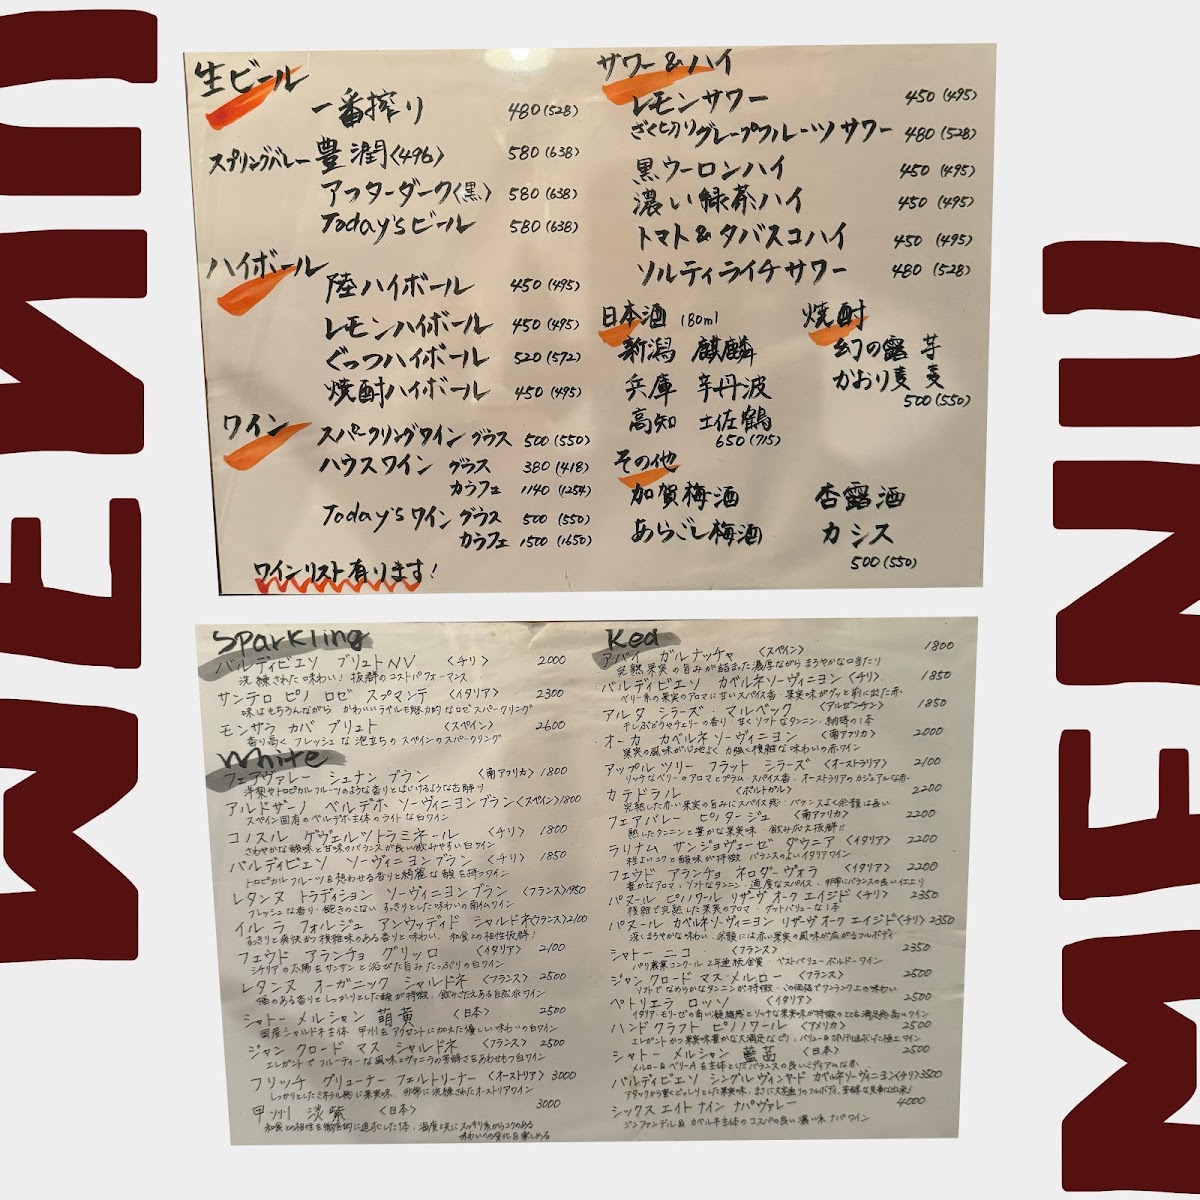 MENU
生ビール
一番搾り 480(528)
スプリングバレー 豊潤〈496〉 580(638)
アフターダーク〈黒〉 580(638)
Today'sビール 580(638)
ハイボール
陸ハイボール 450(495)
レモンハイボール 450(495)
ぐっつハイボール 520(572)
焼酎ハイボール 450(495)
ワイン
スパークリングワイン グラス 500(550)
ハウスワイン グラス 380(418)
カラフェ 1140(1254)
Today'sワイン グラス 500(550)
カラフェ 1500(1650)
ワインリスト有ります!
サワー&ハイ
レモンサワー 450(495)
ざく切りグレープフルーツサワー 480(528)
黒ウーロンハイ 450(495)
濃い緑茶ハイ 450(495)
トマト&タバスコハイ 450(495)
ソルティライチサワー 480(528)
日本酒 180ml
新潟 麒麟
兵庫 辛丹波
高知 土佐鶴
650(715)
焼酎
幻の露 芋
かおり麦 麦
500(550)
その他
加賀梅酒 杏露酒
あらごし梅酒 カシス
500(550)
Sparkling
バルディビエソ ブリュトNV 〈チリ〉 2000
洗練された味わい!抜群のコストパフォーマンス
サンテロ ピノ ロゼ スプマンテ 〈イタリア〉 2300
味はもちろんながら かわいいラベルも魅力的なロゼスパークリング
モンサラ カバ ブリュト 〈スペイン〉 2600
香り高く フレッシュな泡立ちのスペインのスパークリング
White
フェアヴァレー シュナン ブラン 〈南アフリカ〉 1800
洋梨やトロピカルフルーツのような香りとはじけるような口解り
アルドザーノ ベルデホ ソーヴィニヨンブラン〈スペイン〉1800
スペイン固有のベルデホ主体のライトな白ワイン
コノスル ゲヴェルツトラミネール 〈チリ〉 1800
さわやかな酸味と甘味のバランスが良い飲みやすい白ワイン
バルディビエソ ソーヴィニヨンブラン 〈チリ〉 1850
トロピカルフルーツを想わせる香りと綺麗な酸を持つワイン
レタンヌ トラディション ソーヴィニヨンブラン 〈フランス〉1950
フレッシュな香り・飽きのこない すっきりとした味わいの南仏ワイン
イル ラ フォルジュ アンウッディド シャルドネ〈フランス〉2100
すっきりと爽快かつ複雑味のある香りと味わい、和食との相性抜群!
フェウド アランチョ グリッロ 〈イタリア〉 2100
シチリアの太陽をサンサンと浴びた旨みたっぷりの白ワイン
レタンヌ オーガニック シャルドネ 〈フランス〉 2500
樽のある香りとしっかりとした酸が特徴、飲みごたえある自然派ワイン
シャトー メルシャン 萌黄 〈日本〉 2500
国産シャルドネ主体 甲州をアクセントに加えた優しい味わいの白ワイン
ジャン クロード マス シャルドネ 〈フランス〉 2500
エレガントでフルーティーな風味とヴァニラの芳醇さをあわせもつ白ワイン
フリッチ グリューナー フェルトリーナー 〈オーストリア〉 3000
しっかりとしたミネラル感に果実味、非常に洗練されたオーストリアワイン
甲州 淡紫 〈日本〉 3000
和食との相性を徹底的に追求した1本、温度と共にスッキリ系からコクのある
味わいへの変化を楽しめる
Red
アバイ ガルナッチャ 〈スペイン〉 1800
完熟果実の旨みが詰まった濃厚ながらまろやかな口当たり
バルディビエソ カベルネソーヴィニヨン〈チリ〉 1850
ベリー系の果実のアロマに甘いスパイス香・果実味がグッと前に出た赤
アルタ シラーズ・マルベック 〈アルゼンチン〉 1850
干しぶどうやチェリーの香り・甘くソフトなタンニン、納得の1本
オーカ カベルネソーヴィニヨン 〈南アフリカ〉 2000
果実の風味が心地よく 力強く複雑な味わいの赤ワイン
アップル ツリー フラット シラーズ 〈オーストラリア〉 2100
リッチなベリーのアロマとプラム・スパイス香・オーストラリアのカジュアルな赤
カテドラル 〈ポルトガル〉 2200
完熟した赤い果実の旨みにスパイス感・バランスよく余韻は長い
フェアバレー ピノタージュ 〈南アフリカ〉 2200
熟したタンニンと豊かな果実味・飲み応え抜群!!
ラリナム サンジョヴェーゼ ダウニア 〈イタリア〉 2200
程よいコクと酸味が特徴 バランスのよいイタリアワイン
フェウド アランチョ ネロダーヴォラ 〈イタリア〉 2200
豊かなアロマ・ソフトなタンニン・適度なスパイス、非常にバランスの良い仕上り
パヌール ピノノワール リザーヴ オーク エイジド〈チリ〉 2350
複雑で完熟した果実のアロマ・グットバリューな1本
パヌール カベルネソーヴィニヨン リザーヴ オーク エイジド〈チリ〉2350
深くまろやかな味わい、余韻には赤い果実の風味が広がるフルボディ
シャトー ニコ 〈フランス〉 2350
パリ農業コンクール 2年連続金賞 ベストバリューボルドーワイン
ジャン クロード マス メルロー 〈フランス〉 2500
ソフトでなめらかなタンニンが特徴・この価格でワンランク上の味わい
ペトリエラ ロッソ 〈イタリア〉 2500
ハンドクラフト ピノノワール〈アメリカ〉 2500
シャトー メルシャン 藍茜 〈日本〉 2500
メルロー&ベリーAを主体としたバランスの良いミディアムな赤
バルディビエソ シングルヴィンヤード カベルネソーヴィニヨン〈チリ〉3500
シックス エイト ナイン ナパヴァレー 4000
ジンファンデル& カベルネ主体のコスパの良い濃い系ナパワイン
MENU